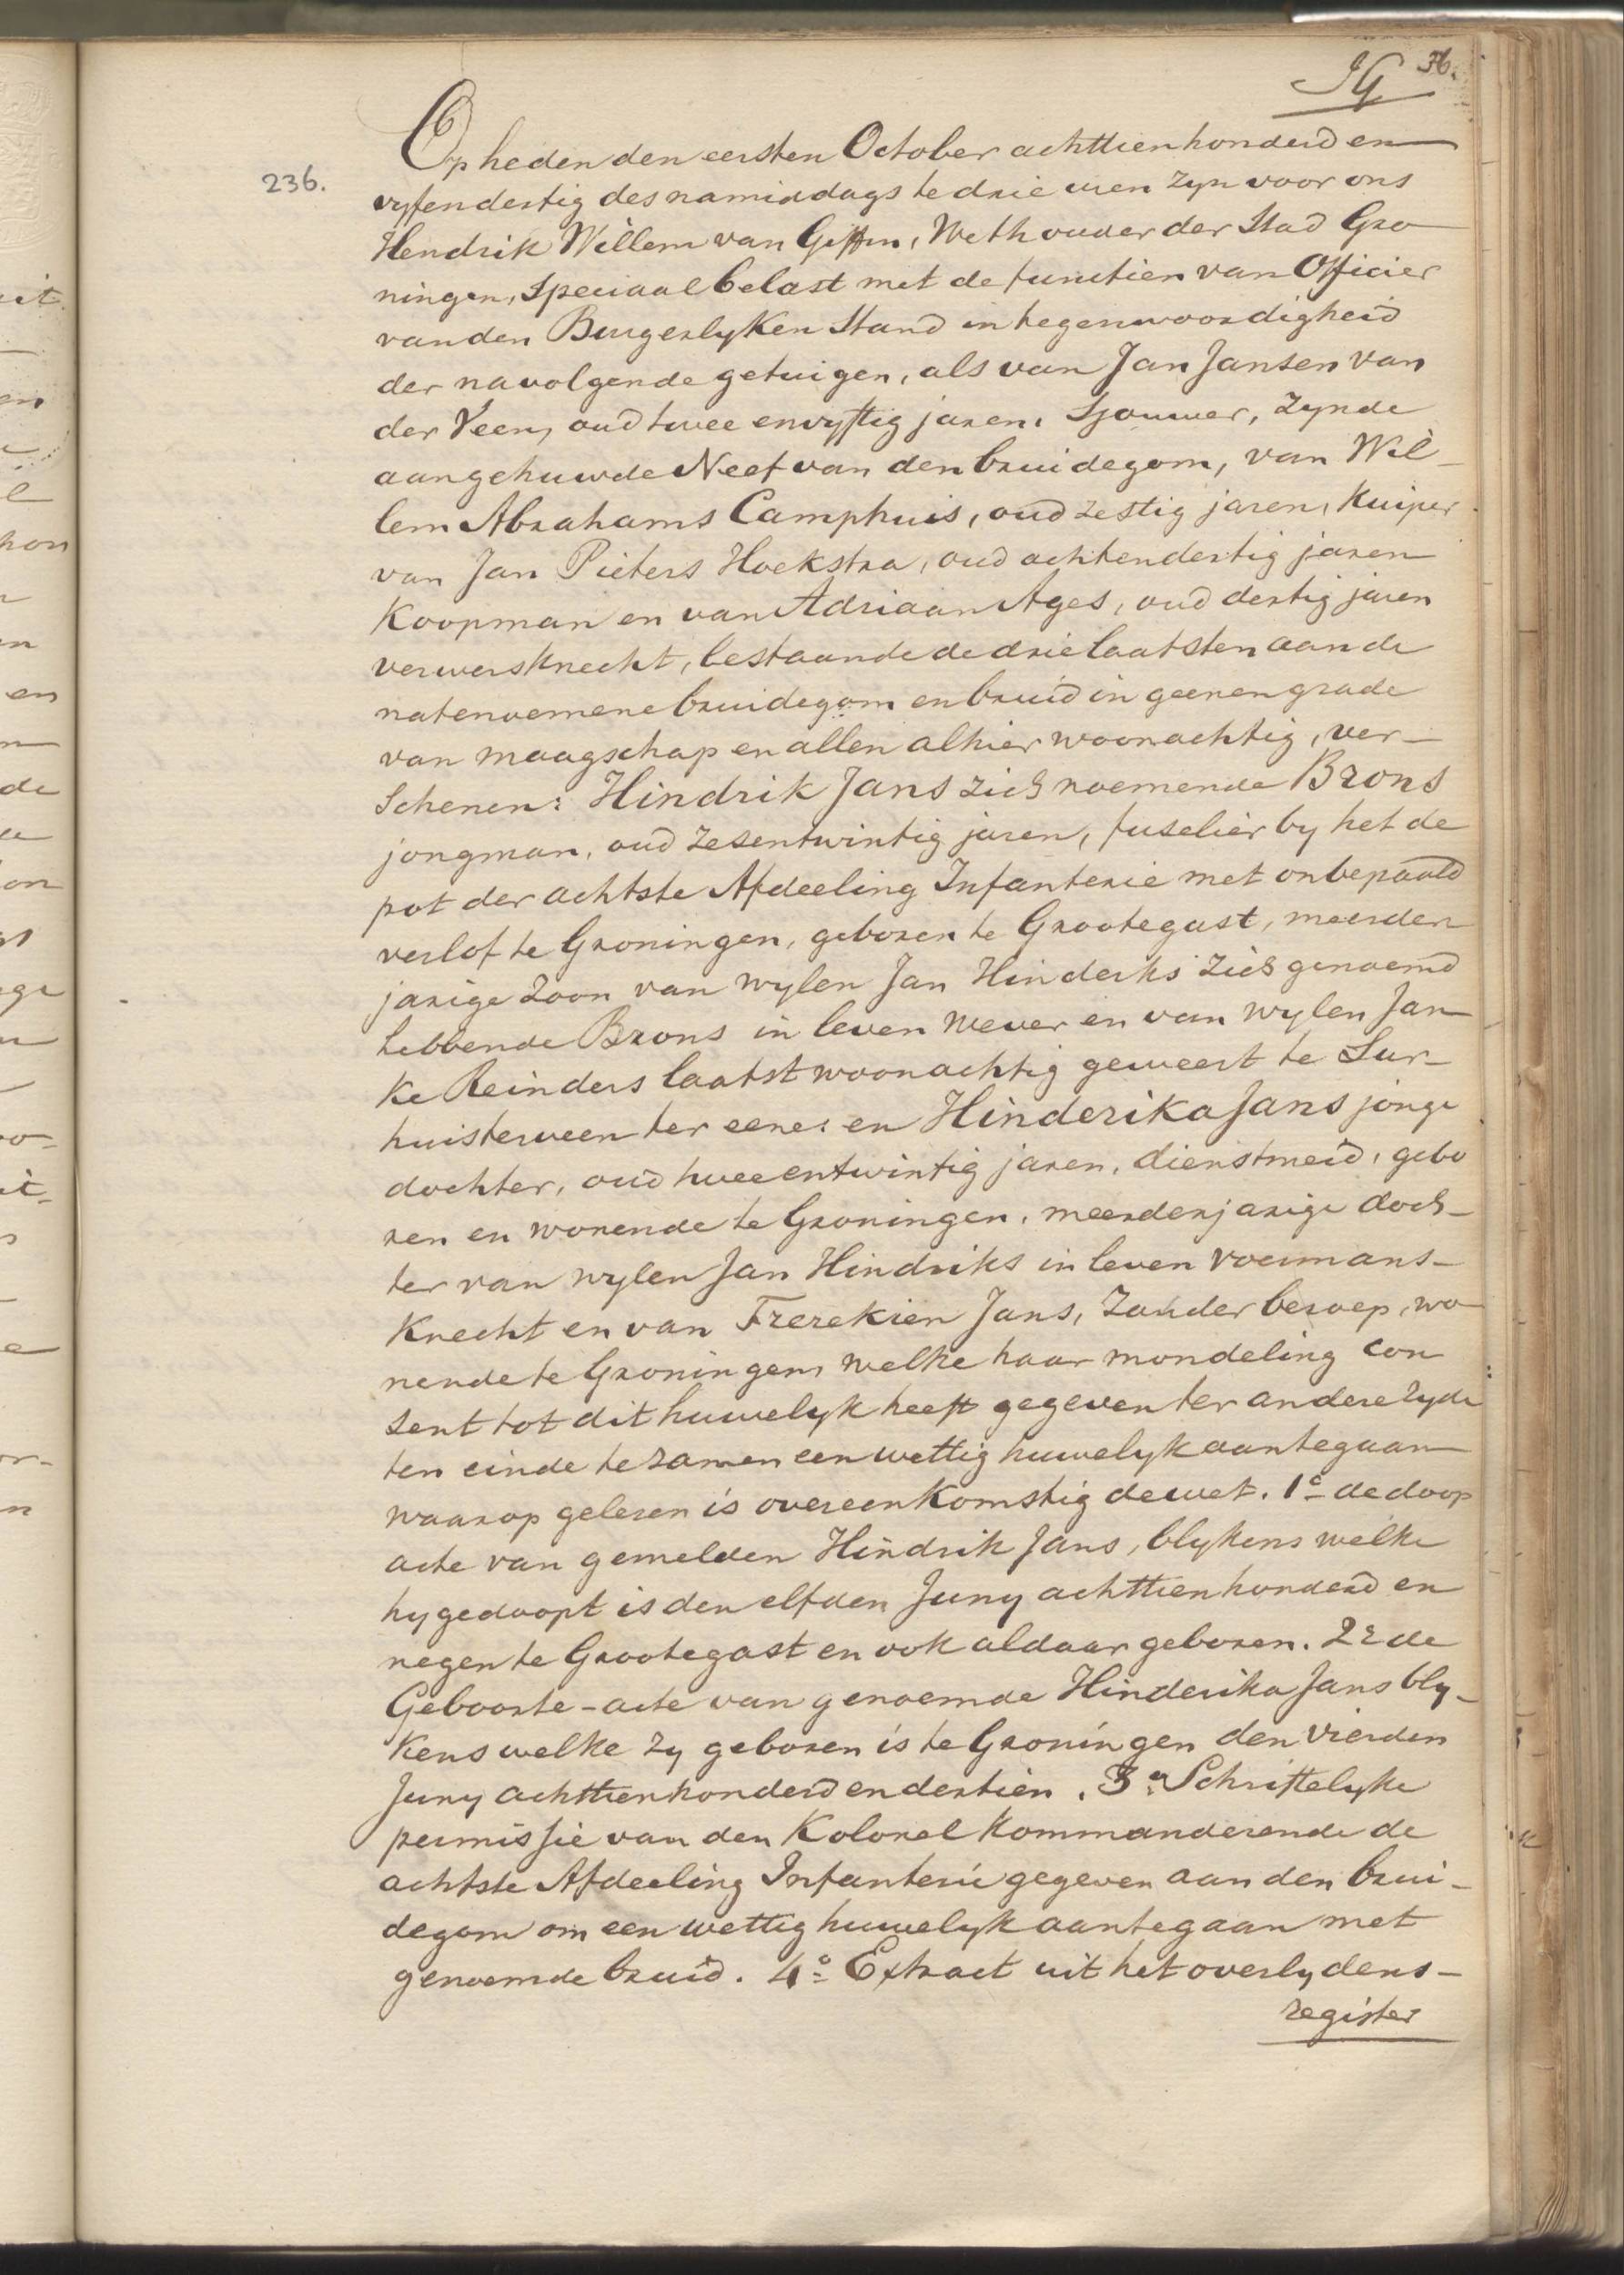 36.
236.
Op heden den eersten October achttienhonderd en
vyfendertig des namiddags te drie uren zyn voor ons
Hendrik Willem van Giffen, Wethouder der Stad Gro
ningen, Speciaal belast met de functien van Officier
van den Burgerlyken Stand in tegenwoordigheid
der navolgende getuigen, als van Jan Jansen van
der Veen, oud twee en vyftig jaren, Sjouwer, zynde
aangehuwde Neef van den bruidegom, van Wil-
lem Abrahams Camphuis, oud zestig jaren, Kuiper
van Jan Pieters Hoekstra, oud achtendertig jaren
Koopman en van Adriaan Ages, oud dertig jaren
verwersknecht, bestaande de drie laatsten aan de
natenoemene bruidegom en bruid in geenen grade
van maagschap en allen alhier woonachtig, ver-
schenen: Hindrik Jans zich noemende Brons
jongman, oud zesentwintig jaren, fuselier by het de
pot der achtste Afdeeling Infanterie met onbepaald
verlof te Groningen, geboren te Grootegast, meerder
jarige zoon van wylen Jan Hinderks zich genoemd
hebbende Brons in leven wever en van wylen Jan
ke Reinders laatst woonachtig geweest te Sur-
huisterveen ter eener en Hinderika Jans jonge
dochter, oud tweeentwintig jaren, dienstmeid, gebo
ren en wonende te Groningen, meerderjarige doch-
ter van wylen Jan Hindriks in leven voermans-
knecht en van Frerekien Jans, zonder beroep, wo
nende te Groningen, welke haar mondeling con
sent tot dit huwelyk heeft gegeven ter andere zyde
ten einde te zamen een wettig huwelyk aantegaan
waarop gelezen is overeenkomstig de wet. 1e de doop
acte van gemelden Hindrik Jans, blykens welke
hy gedoopt is den elfden Juny achttienhonderd en
negen te Grootegast en ook aldaar geboren. 2e de
Geboorte-acte van genoemde Hinderika Jans bly-
kens welke zy geboren is te Groningen den vierden
Juny achttienhonderd en dertien. 3e Schriftelyke
permissie van den Kolonel kommanderende de
achtste Afdeeling Infanterie gegeven aan den brui-
degom om een wettig huwelyk aantegaan met
genoemde bruid. 4o Extract uit het overlydens-
register